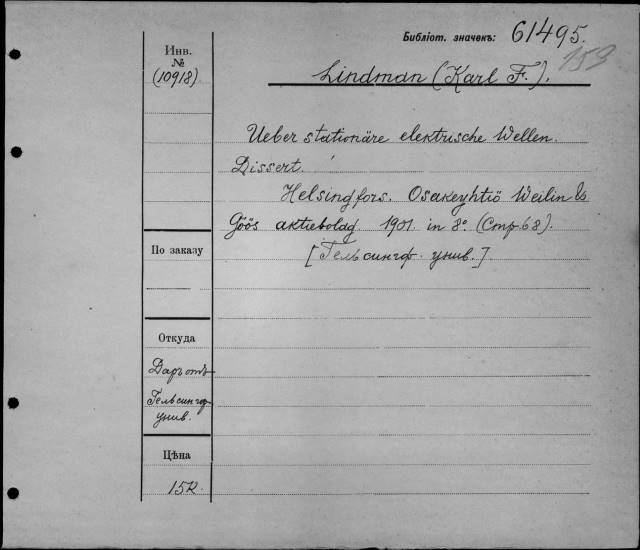 Библіот. значекъ: 61495.
153
Инв.
№
(10918)
Lindman (Karl F.).
Ueber stationäre elektrische Wellen.
Dissert.
Helsingfors. Osakeyhtiö Weilin &
Göös aktiebolag 1901. in 8º. (Стр. 68).
[Гельсингф. унив.]
По заказу
Откуда
Даръ отъ
Гельсингф.
унив.
Цѣна
15к.